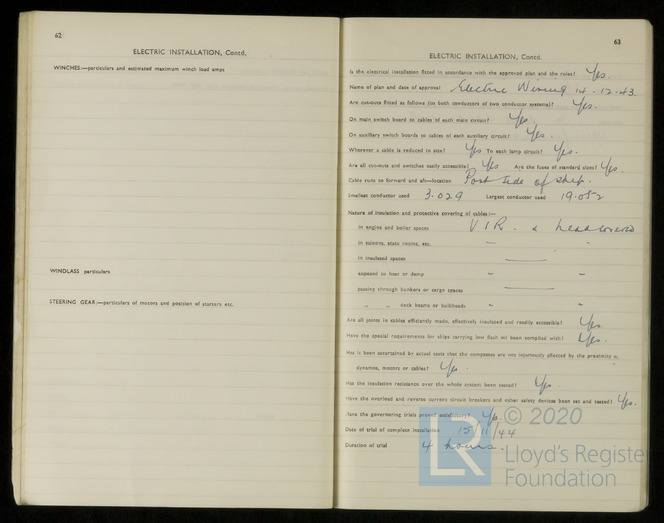 62
ELECTRIC INSTALLATION, Contd.
WINCHES:—particulars and estimated maximum winch load amps
WINDLASS particulars
STEERING GEAR:—particulars of motors and position of starters etc.
63
ELECTRIC INSTALLATION, Contd.
Is the electrical installation fitted in accordance with the approved plan and the rules? Yes.
Name of plan and date of approval Electric Wiring 14.12.43.
Are cut-outs fitted as follows (to both conductors of two conductor systems)? Yes.
On main switch board to cables of each main circuit? Yes.
On auxiliary switch boards to cables of each auxiliary circuit? Yes.
Wherever a cable is reduced in size? Yes To each lamp circuit? Yes.
Are all cut-outs and switches easily accessible? Yes Are the fuses of standard sizes? Yes.
Cable runs to forward and aft—location Port side of ship.
Smallest conductor used 3.029 Largest conductor used 19.052
Nature of insulation and protective covering of cables:—
in engine and boiler spaces V I R. & lead covered
in saloons, state rooms, etc. " "
in insulated spaces —
exposed to heat or damp " "
passing through bunkers or cargo spaces —
" " deck beams or bulkheads " "
Are all joints in cables efficiently made, effectively insulated and readily accessible? Yes
Have the special requirements for ships carrying low flash oil been complied with? Yes.
Has it been ascertained by actual tests that the compasses are not injuriously affected by the proximity o
dynamos, motors or cables? Yes.
Has the insulation resistance over the whole system been tested? Yes.
Have the overload and reverse current circuit breakers and other safety devices been set and tested? Yes.
Have the governing trials proved satisfactory? Yes.
Date of trial of complete installation 15/11/44
Duration of trial 4 hours.
LR
© 2020
Lloyd's Register
Foundation